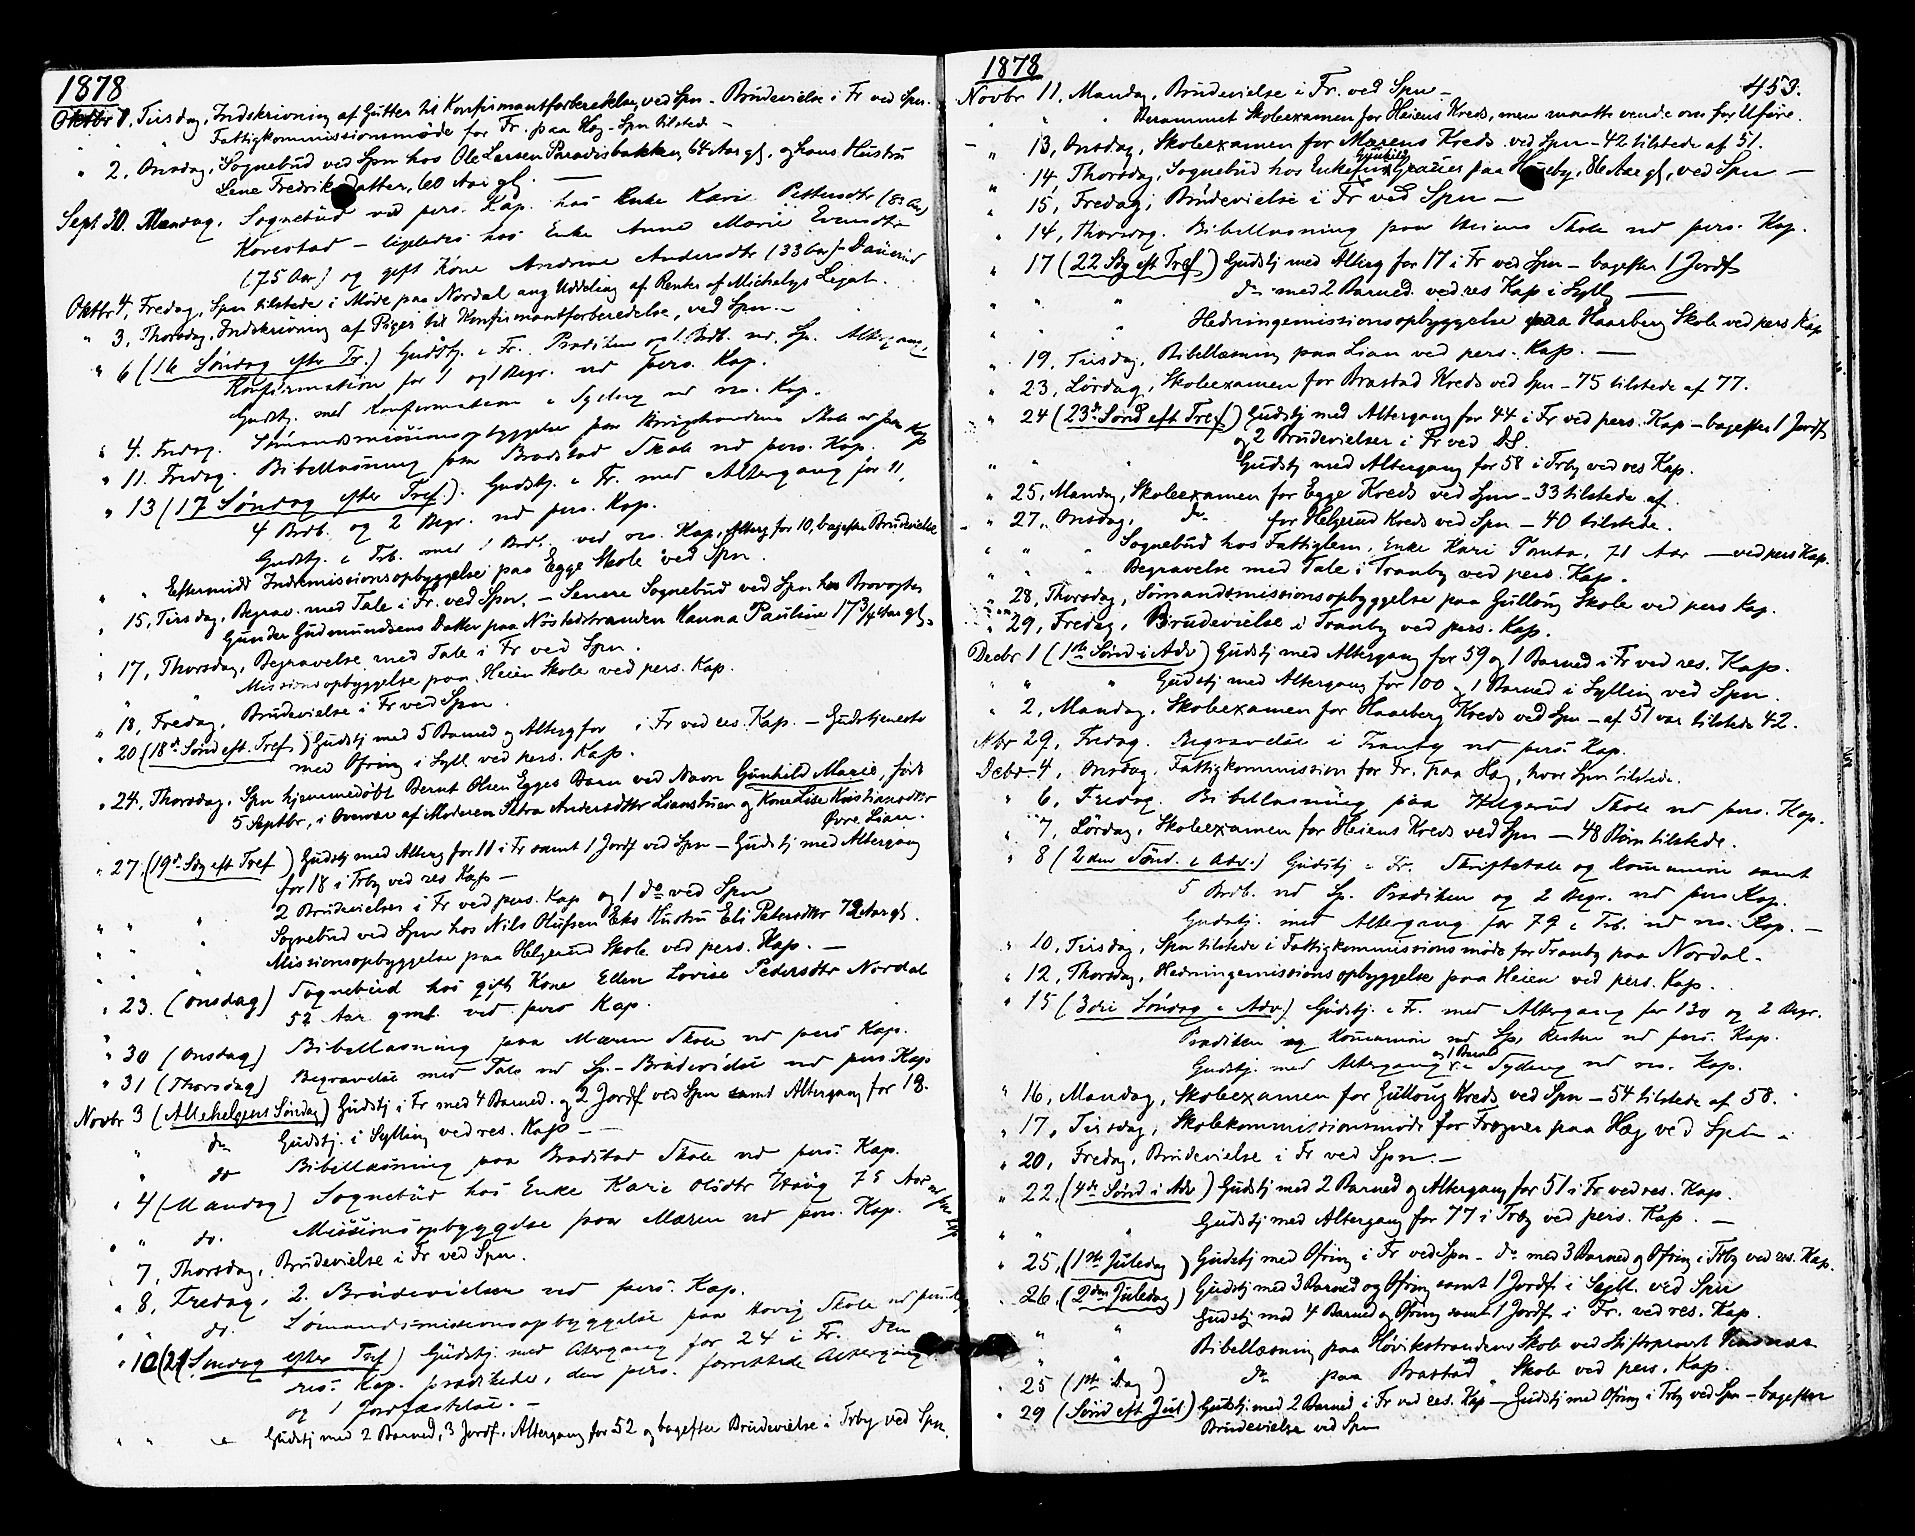 1878
Oktbr 1, Tirsdag, Indskrivning af Gutter til Konfirmantforberedelse, ved Spn - Brudevielse i Fr ved Spn.
" " " Fattigkommissionsmøde for Fr. paa Hæg - Spn tilstede -
" 2, Onsdag, Sognebud ved Spn hos Ole Larsen Paradisbakken, 64 Aar gl, og hans Hustru
Lene Fredriksdatter, 60 Aar gl. —
Sept 30. Mandag. Sognebud ved pers. Kap. hos Enke Kari Pettersdtr (83 Aar)
Korestad - ligeledes hos Enke Anne Marie Evensdtr
(75 Aar) og gift Kone Andrine Andersdtr (33 Aar) Dauerud
Oktbr 4, Fredag, Spn tilstede i Møde paa Nordal ang Uddeling af Renter af Michelsys Legat.
" 3, Thorsdag, Indskrivning af Piger til Konfirmantforberedelse, ved Spn. -
" 6 (16 Søndag efter Tr.) Gudstj. i Fr. Prædiken og 1 Brdb. ved Sp. Altergang,
Konfirmation for 1 og 1 Begr. ved pers. Kap.
Gudstj. med Konfirmation i Sylling ved res. Kap.
" 4. Fredag. Sømandsmissionsopbyggelse paa Skole ved pers Kap
" 11. Fredag. Bibellæsning paa Bradstad Skole ved pers. Kap.
" 13 (17 Søndag efter Tref.). Gudstj. i Fr. med Altergang for 11,
4 Brdb. og 2 Begr. ved pers. Kap.
Gudstj. i Trb. med 1 Brdb. ved res. Kap, Alterg for 10, bagefter Brudevielse
" " Eftermidd Indremissionsopbyggelse paa Egge Skole ved Spn.
" 15, Tirsdag, Begrav. med Tale i Fr. ved Spn. - Senere Sognebud ved Spn hos
Gunder Gudmundsens Datter paa Nøstestranden Hanna Pauline 17 3/4 Aar gl.
" 17, Thorsdag, Begravelse med Tale i Fr ved Spn.
" " Missionsopbyggelse paa Heien Skole ved pers. Kap.
" 18, Fredag, Brudevielse i Fr ved Spn.
" 20 (18de Sønd eft. Tref) Gudstj med 5 Barned og Alterg for i Fr ved res. Kap. - Gudstjeneste
med Ofring i Syll. ved pers. Kap.
" 24, Thorsdag, Spn hjemmedøbt Bernt Olsen Egges Barn ved Navn Gunhild Marie, født
5 Septbr, i Overvær af Moderen Petra Andersdtr Lianstuen og Kone Lise Kristiansdtr
Øvre Lian.
" 27, (19de Sdg eft Tref) Gudstj med Alterg for 11 i Fr samt 1 Jordf ved Spn - Gudstj med Altergang
for 18 i Trby ved res Kap -
" " " 2 Brudevielser i Fr ved pers. Kap og 1 do ved Spn
" " " Sognebud ved Spn hos Nils Olufsen Eks Hustru Eli Petersdtr 72 Aar gl.
" " " Missionsopbyggelse paa Helgerud Skole ved pers. Kap. —
" 23. (Onsdag) Sognebud hos gift Kone Ellen Lovise Pedersdtr Nordal
52 Aar gml. ved pers Kap.
" 30 (Onsdag) Bibellæsning paa Mæren Skole ved pers Kap.
" 31 (Thorsdag) Begravelse med Tale ved Sp. - Brudevielse ved pers. Kap
Novbr 3 (Allehelgens Søndag) Gudstj i Fr med 4 Barned. og 2 Jordf ved Spn samt Altergang for 18.
" do Gudstj. i Sylling ved res. Kap -
" do Bibellæsning paa Bradstad Skole ved pers. Kap.
" 4 (Mandag) Sognebud hos Enke Karie Olsdtr Haug 75 Aar ved pers Kap
" " do. Missionsopbyggelse paa Mæren ved pers. Kap.
7, Thorsdag, Brudevielse i Fr ved Spn.
" 8, Fredag, 2 Brudevielser ved pers. Kap.
" " do. Sømandsmissionsopbyggelse paa Høvig Skole ved pers Kap
" 10 (21 Søndag efter Tref) Gudstj. med Altergang for 24 i Fr. Den
res. Kap. prædikede, den pers. forrettede Altergang
og 1 Jordfæstelse. -
" " " Gudstj med 2 Barned, 3 Jordf, Altergang for 52 og bagefter Brudevielse i Trby ved Spn.
1878
453.
Novbr 11, Mandag, Brudevielse i Fr. ved Spn -
" " " Berammet Skoleexamen for Heiens Kreds, men maatte vende om for Uføre.
" 13, Onsdag, Skoleexamen for Mærens Kreds ved Spn - 42 tilstede af 51.
" 14 Thorsdag, Sognebud hos Enkefru Gunhild paa Huseby, 86 Aar gl, ved Spn —
" 15, Fredag, Brudevielse i Fr ved Spn —
" 14, Thorsdag. Bibellæsning paa Heiens Skole ved pers. Kap.
" 17 (22 Sdg eft Tref) Gudstj med Alterg for 17 i Fr ved Spn - bagefter 1 Jordf
" " " do med 2 Barned. ved res Kap i Sylling —
" " " Hedningemissionsopbyggelse paa Haarberg Skole ved pers Kap
" 19, Tirsdag, Bibellæsning paa Lian ved pers. Kap. —
" 23, Lørdag, Skoleexamen for Brastad Kreds ved Spn - 75 tilstede af 77.
" 24 (23de Sønd eft Tref) Gudstj med Altergang for 44 i Fr ved pers. Kap - bagefter 1 Jordf
og 2 Brudevielser i Fr ved DS.
" " " Gudstj med Altergang for 58 i Trby ved res Kap.
" 25, Mandag, Skoleexamen for Egge Kreds ved Spn - 33 tilstede af
" 27, Onsdag, do for Helgerud Kreds ved Spn - 40 tilstede.
" " " Sognebud hos Fattiglem, Enke Kari Tomta, 71 Aar — ved pers Kap.
" " " Begravelse med Tale i Tranby ved pers. Kap.
" 28, Thorsdag, Sømandsmissionsopbyggelse paa Gulloug Skole ved pers Kap.
" 29, Fredag, Brudevielse i Tranby ved pers. Kap.
Decbr 1 (1ste Sønd i Adv) Gudstj med Altergang for 59 og 1 Barned i Fr ved res. Kap.
" " " Gudstj med Altergang for 100 og 1 Barned i Sylling ved Spn.
" 2, Mandag, Skoleexamen for Haarberg Kreds ved Spn - af 51 var tilstede 42.
Nbr 29, Fredag. Begravelse i Tranby ved pers. Kap.
Decbr 4, Onsdag. Fattigkommission for Fr. paa Hæg, hvor Spn tilstede.
" 6, Fredag. Bibellæsning paa Helgerud Skole ved pers. Kap.
" 7, Lørdag, Skoleexamen for Heiens Kreds ved Spn — 48 Børn tilstede.
" 8 (2den Sønd. i Adv.) Gudstj i Fr. Skriftetale og Kommunion samt
5 Brdb. ved Sp. Prædiken og 2 Begr. ved pers Kap.
Gudstj. med Altergang for 79 i Trb. ved res. Kap. —
" 10, Tirsdag, Spn tilstede i Fattigkommissionsmøde for Tranby paa Nordal -
" 12, Thorsdag, Hedningemissionsopbyggelse paa Heien ved pers. Kap.
" 15 (3die Søndag i Adv.) Gudstj. i Fr. med Altergang for 130 og 2 Begr.
Prædiken og Kommunion ved Sp, Resten ved pers. Kap.
Gudstj. med Altergang og 1 Barned i Sylling ved res. Kap.
" 16, Mandag, Skoleexamen for Gulloug Kreds ved Spn - 54 tilstede af 58.
" 17, Tirsdag, Skolekommissionsmøde for Frogner paa Hæg ved Spn -
" 20, Fredag, Brudevielse i Fr ved Spn. -
" 22, (4de Sønd i Adv) Gudstj med 2 Barned og Altergang for 51 i Fr ved res. Kap.
" " " Gudstj med Altergang for 77 i Trby ved pers. Kap. —
" 25, (1ste Juledag) Gudstj med Ofring i Fr ved Spn - do med 3 Barned og Ofring i Trby ved res. Kap.
26. (2den Juledag) Gudstj med 3 Barned og Ofring samt 1 Jordf. i Sylt. ved Spn
" " Gudstj med 4 Barned og Ofring samt 1 Jordf i Fr. ved res. Kap.
" " Bibellæsning paa Høvikstrandens Skole ved Stiftsprovst
" 25 (1ste Dag) do paa Brastad Skole ved pers. Kap.
" 29 (Sønd eft Jul) Gudstj med 2 Barned i Fr ved res. Kap - Gudstj med Ofring i Trby ved Spn - bagefter
Brudevielse ved Spn